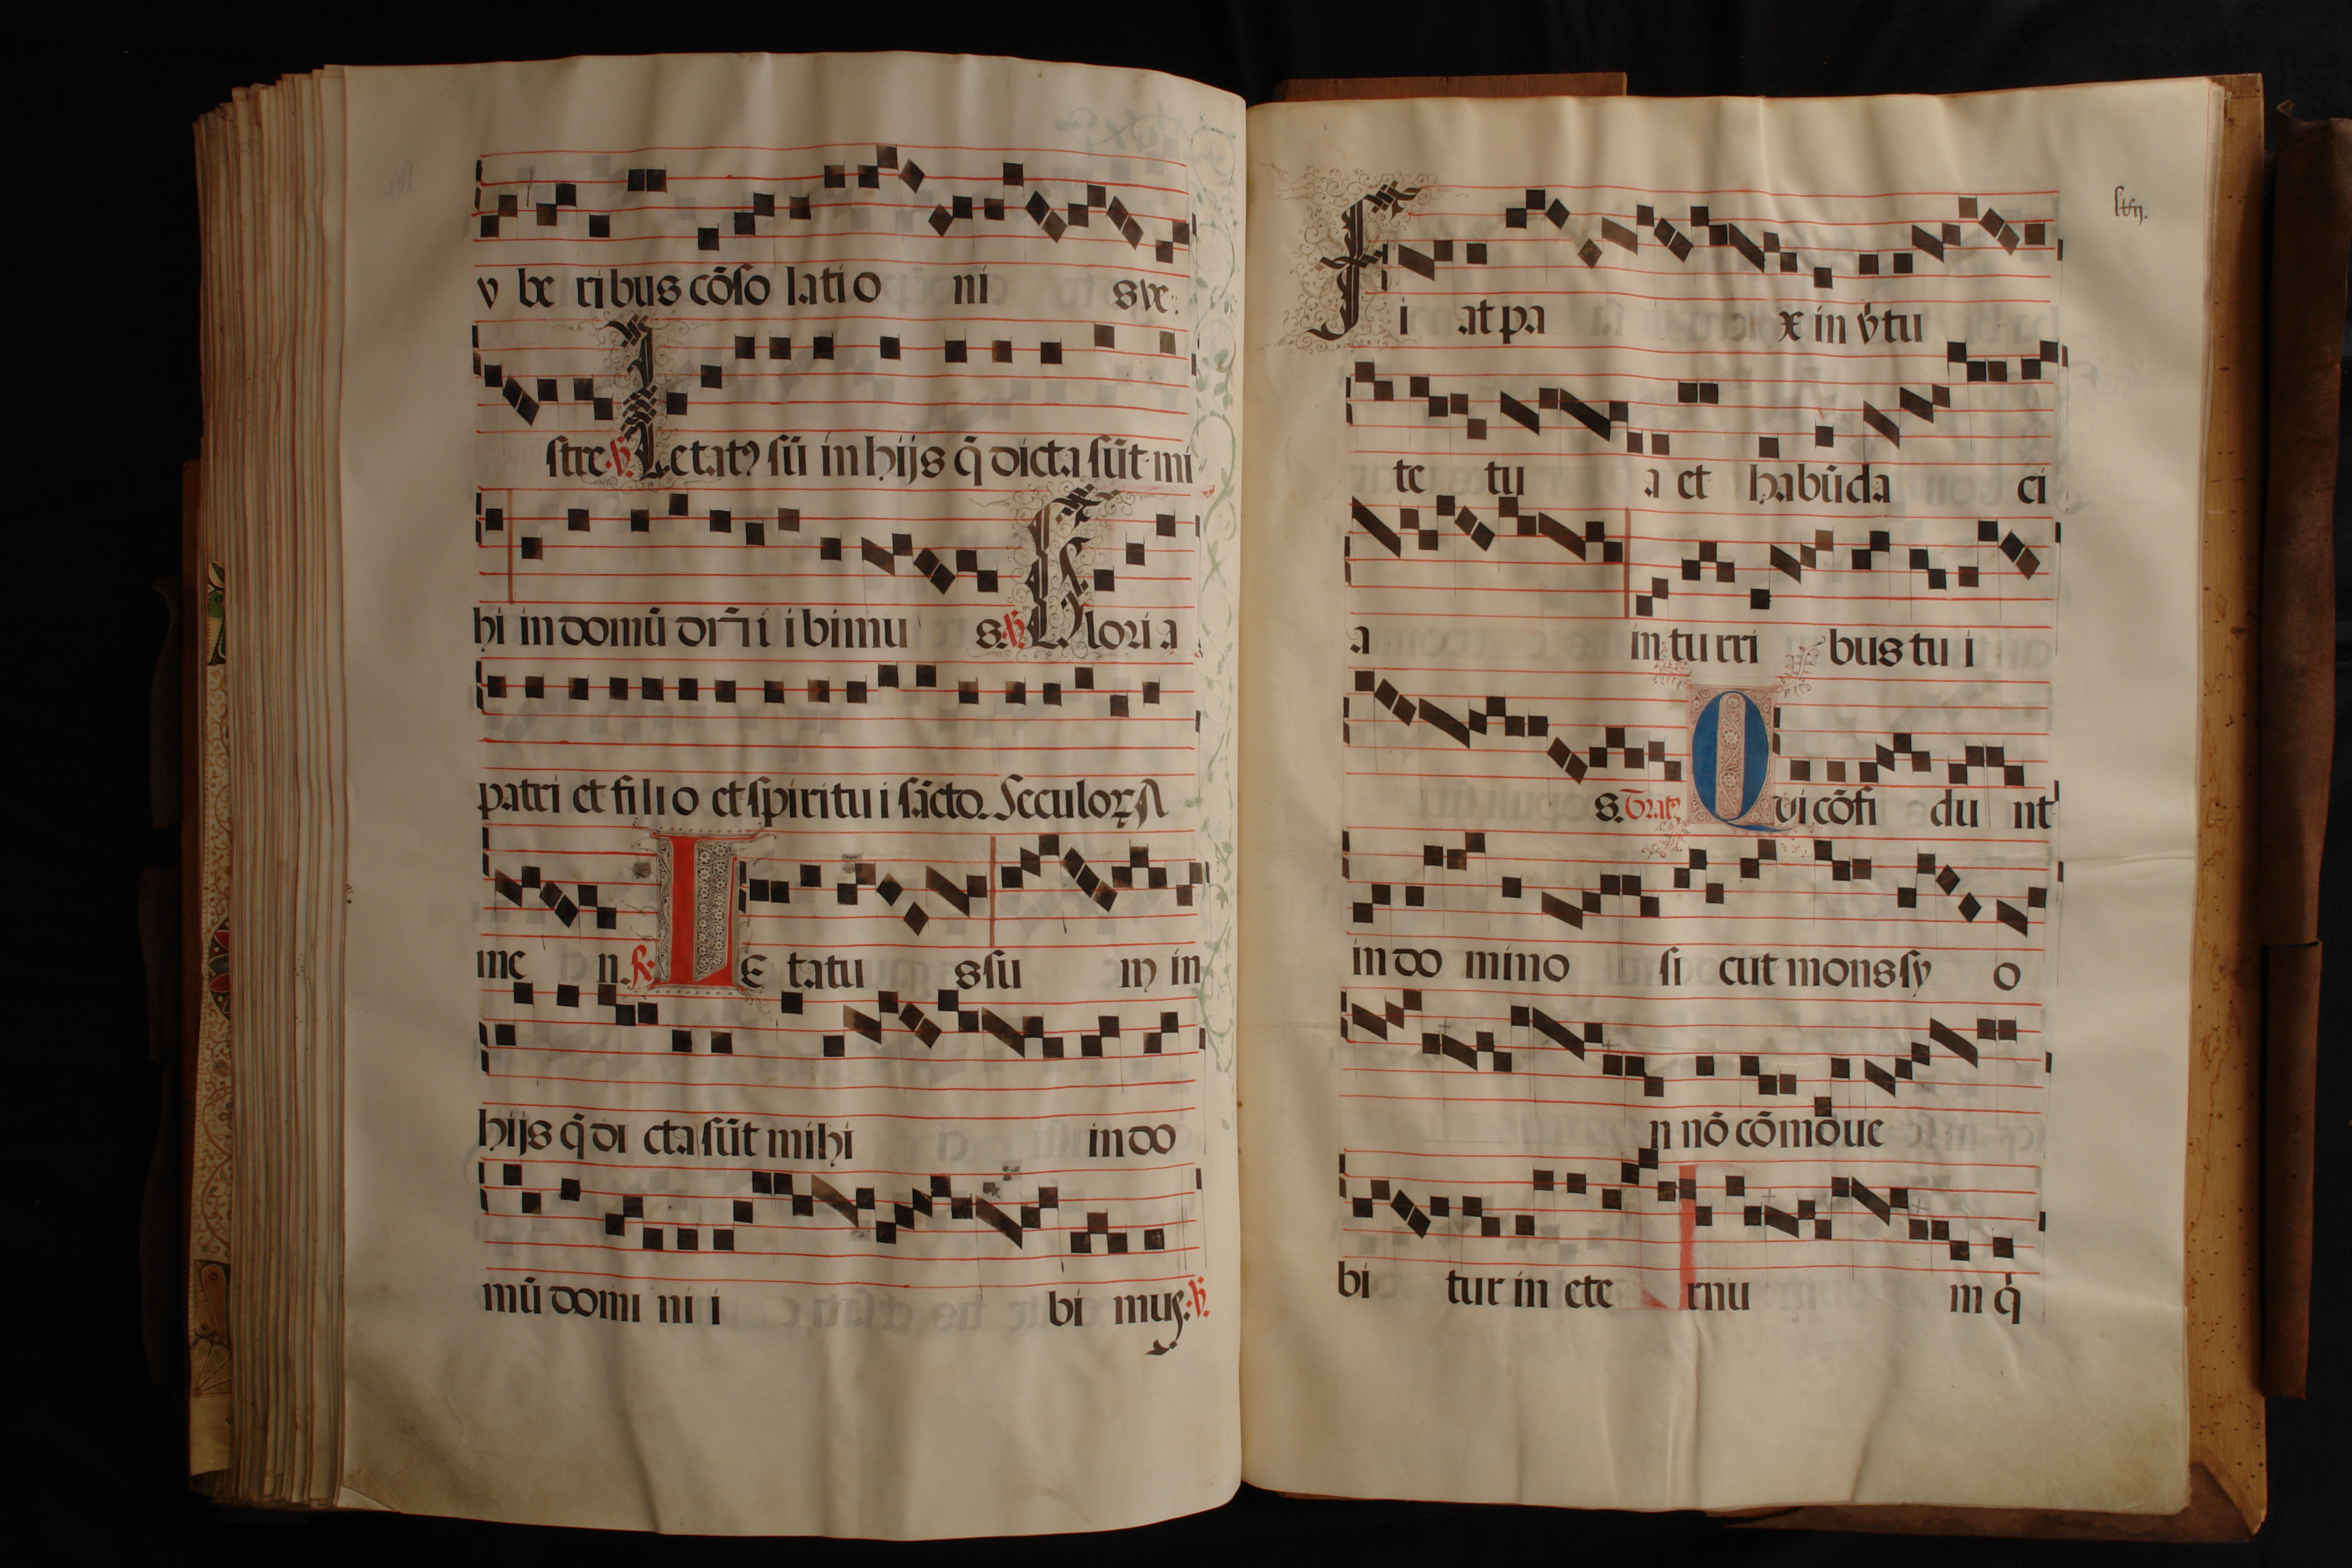 v be ri bus cōso latio ni sve:
stre. ℣. Letatꝰ sū in hijs q̄ dicta sūt mi
hi in domū dn̄i i bimu s. ℣. Gloria
patri et filio et spiritu i sācto. Seculoꝝ A
me n. ℟. Le tatu s su m in
hijs q̄ di cta sūt mihi in do
mū domi ni i bi mus: ℣.
lvij.
Fi at pa x in v̄tu
te tu a et habūda ci
a in tu rri bus tu i
s. Tratꝰ Qvi cōfi du nt
in do mino si cut mons sy o
n nō cōmōue
bi tur in ete rnu m q̇